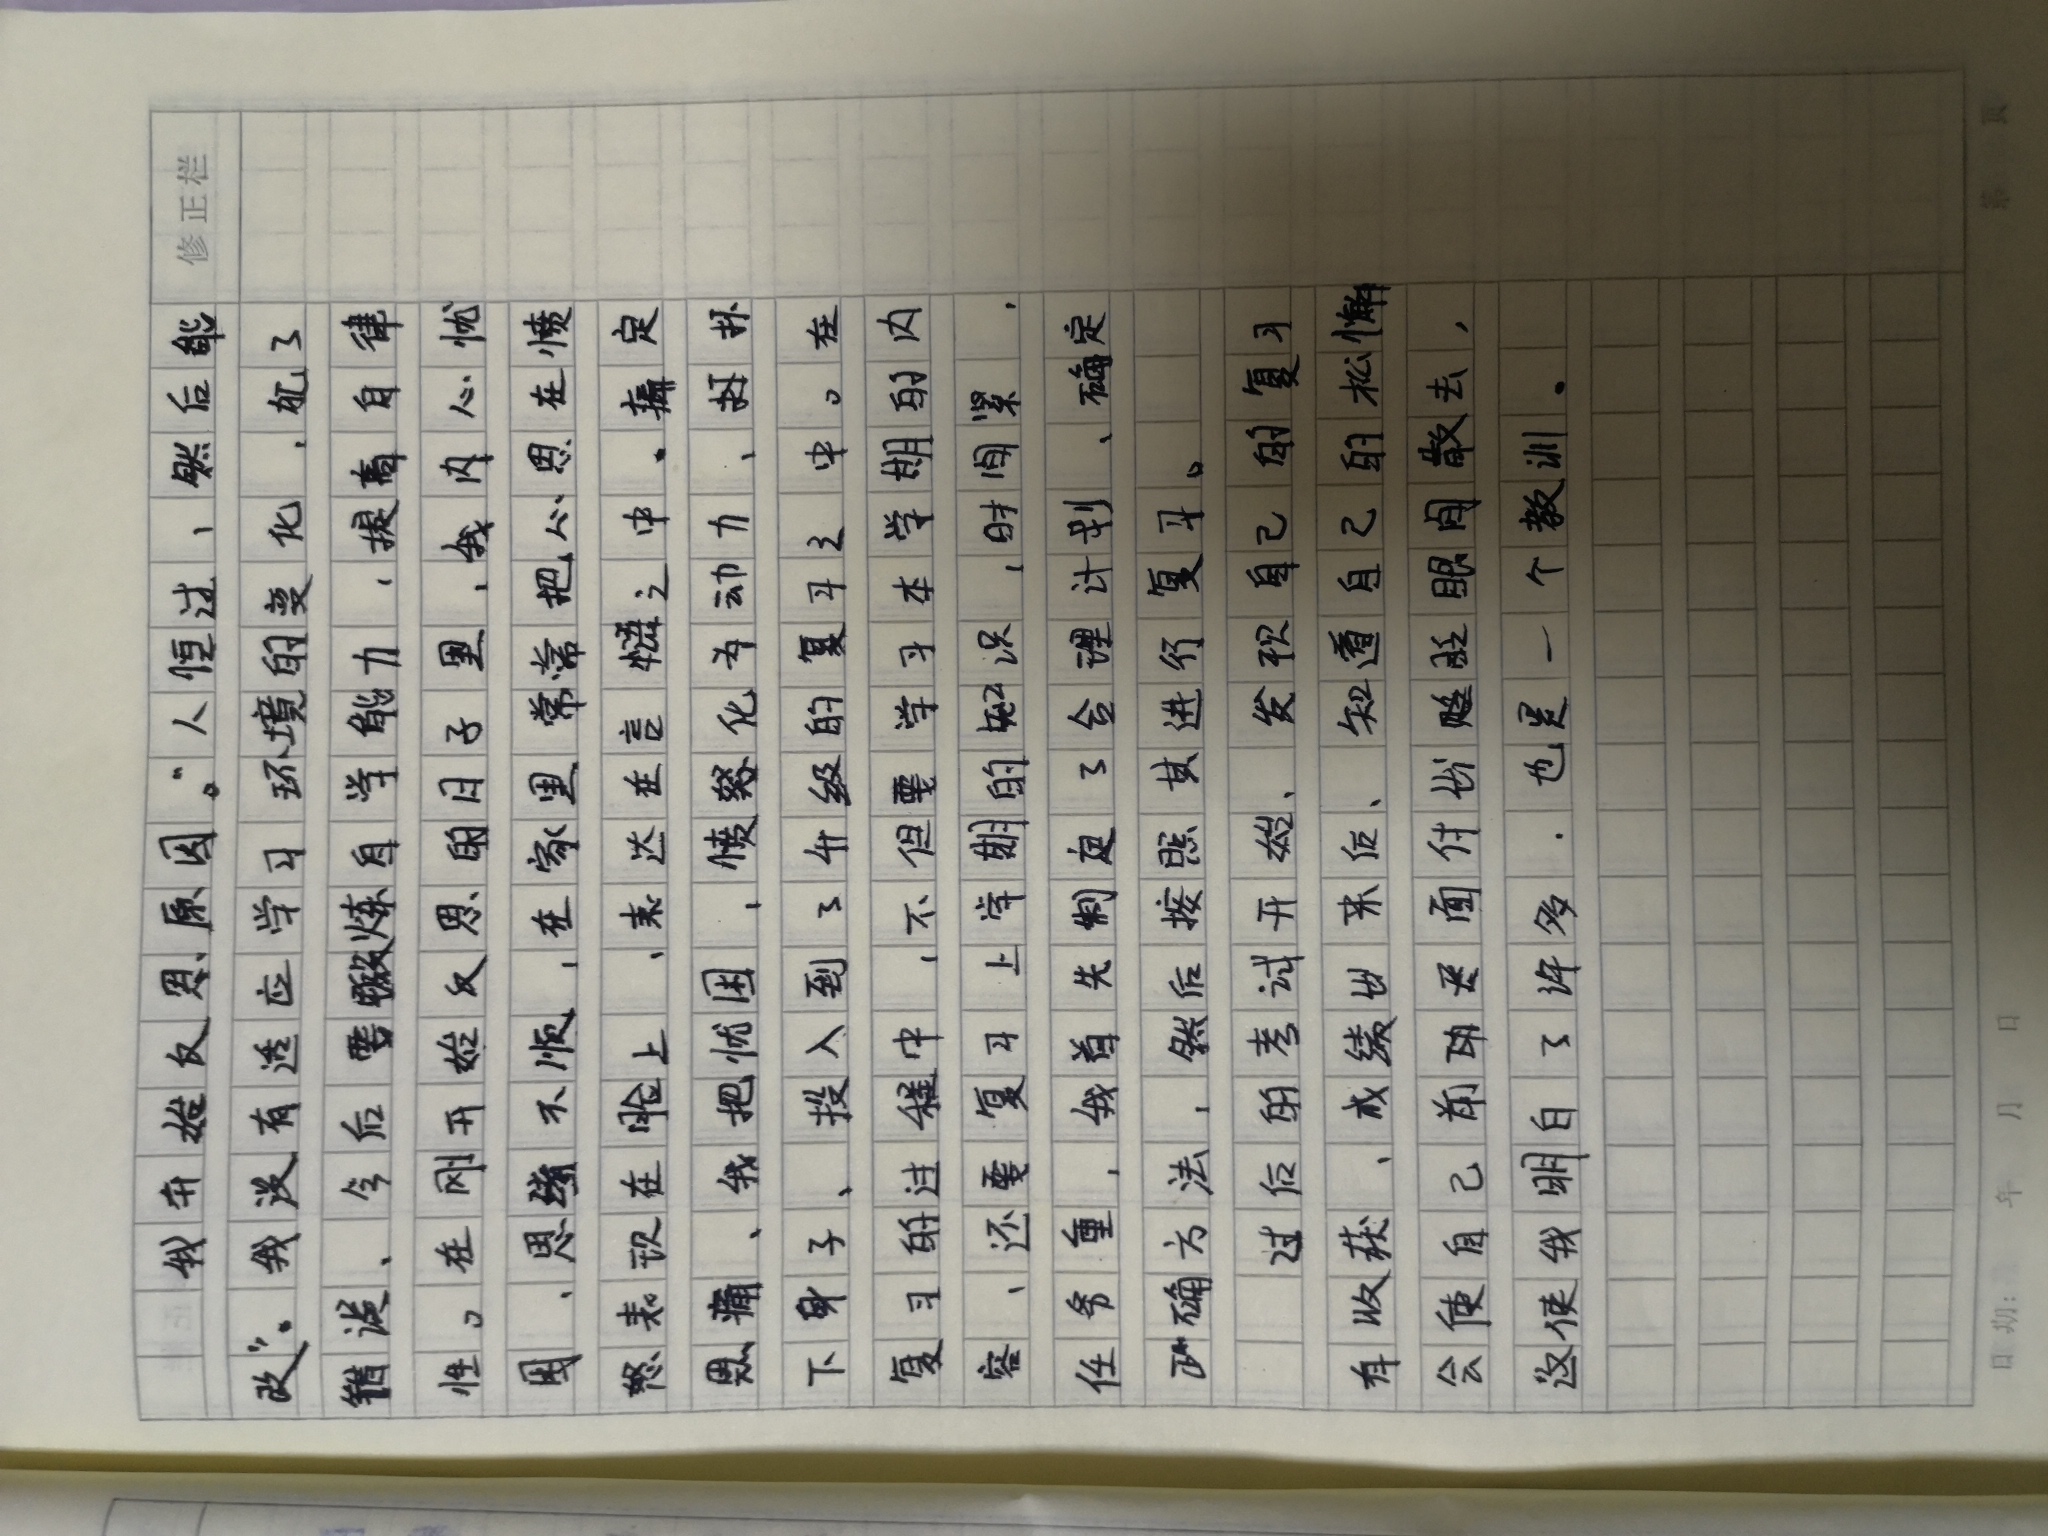 修正栏
我开始反思原因。“人恒过,然后能
改”。我没有适应学习环境的变化,犯了
错误、今后要锻炼自学能力,提高自律
性。在刚开始反思的日子里,我内心忧
困、思绪不顺,在家里常常把心思在愤
怒表现在脸上,表达在言语之中.痛定
思痛、我把忧困,愤怒化为动力、
下身子、投入到了升级的复习之中。在
复习的过程中,不但要学习本学期的内
容、还要复习上学期的知识,时间紧,
任务重,我首先制定了合理计划、确定
正确方法,然后按照其进行复习。
过后的考试开始、发现自己的复习
有收获、成绩出来后、知道自己的松懈
会使自己前功尽
这使我明白了许多.也是一个教训.
日期: 年 月 日
第 页